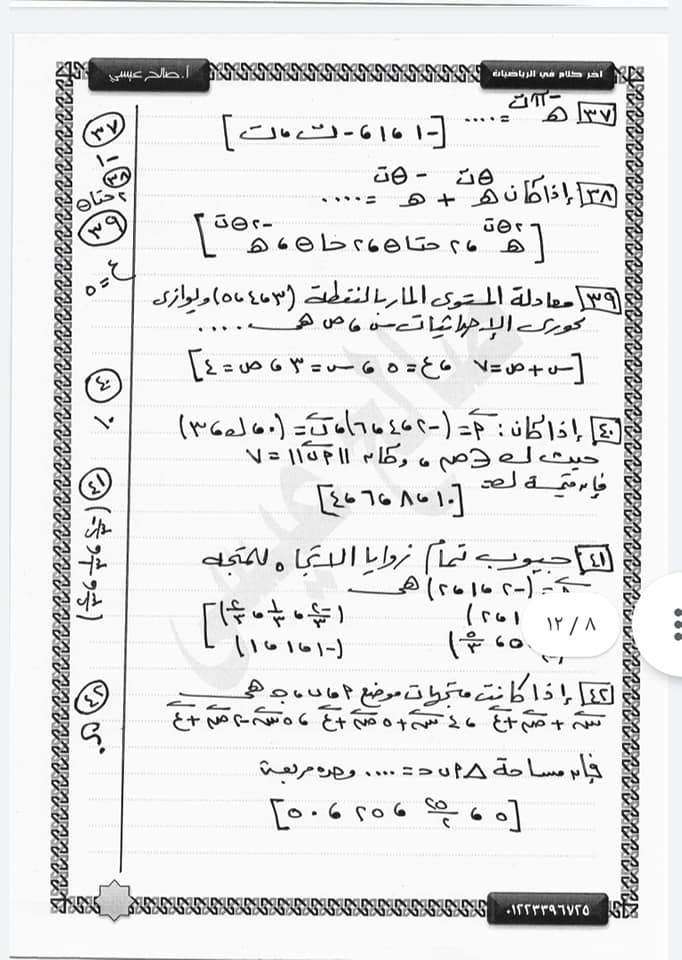 أ. صالح عيسى
آخر كلام في الرياضيات
٣٧ هـ^(-πت) = ....
[-١ ، ١ ، -ت ، ت]
٣٨ إذا كان هـ^(θت) + هـ^(-θت) = ....
[هـ^(٢θت) ، ٢ حتاθ ، ٢ حاθ ، هـ^(-٢θت)]
٣٩ معادلة المستوى المار بالنقطة (٣،٤،٥) ويوازى
محورى الإحداثيات س ، ص هى ....
[س + ص = ٧ ، ع = ٥ ، س = ٣ ، ص = ٤]
٤٠ إذا كان : = (-٢،٤،٦) ، = (٠،ك،٣)
حيث ك ∈ ص ، وكان || || = ٧
فإن قيمة ك =
[١٠ ، ٨ ، ٦ ، ٤]
٤١ جيوب تمام زوايا الاتجاه للمتجه
= (-٢،١،٢) هى
(-٢/٣ ، ١/٣ ، ٢/٣)
(-١،١،١)
٤٢ إذا كانت متجهات موضع ٢ ، ب ، جـ هى
س + ص + ع ، ٤س + ٥ص + ع ، ٥س - ٢ص + ع
فإن مساحة Δ = .... وحدة مربعة
[٥ ، ٢٥/٢ ، ٢٥ ، ٥٠]
٣٧
-١
٣٨
٢حتاθ
٣٩
ع = ٥
٤٠
٤١
٤٢
١٢ / ٨
٠١٢٢٣٣٩٦٧٢٥